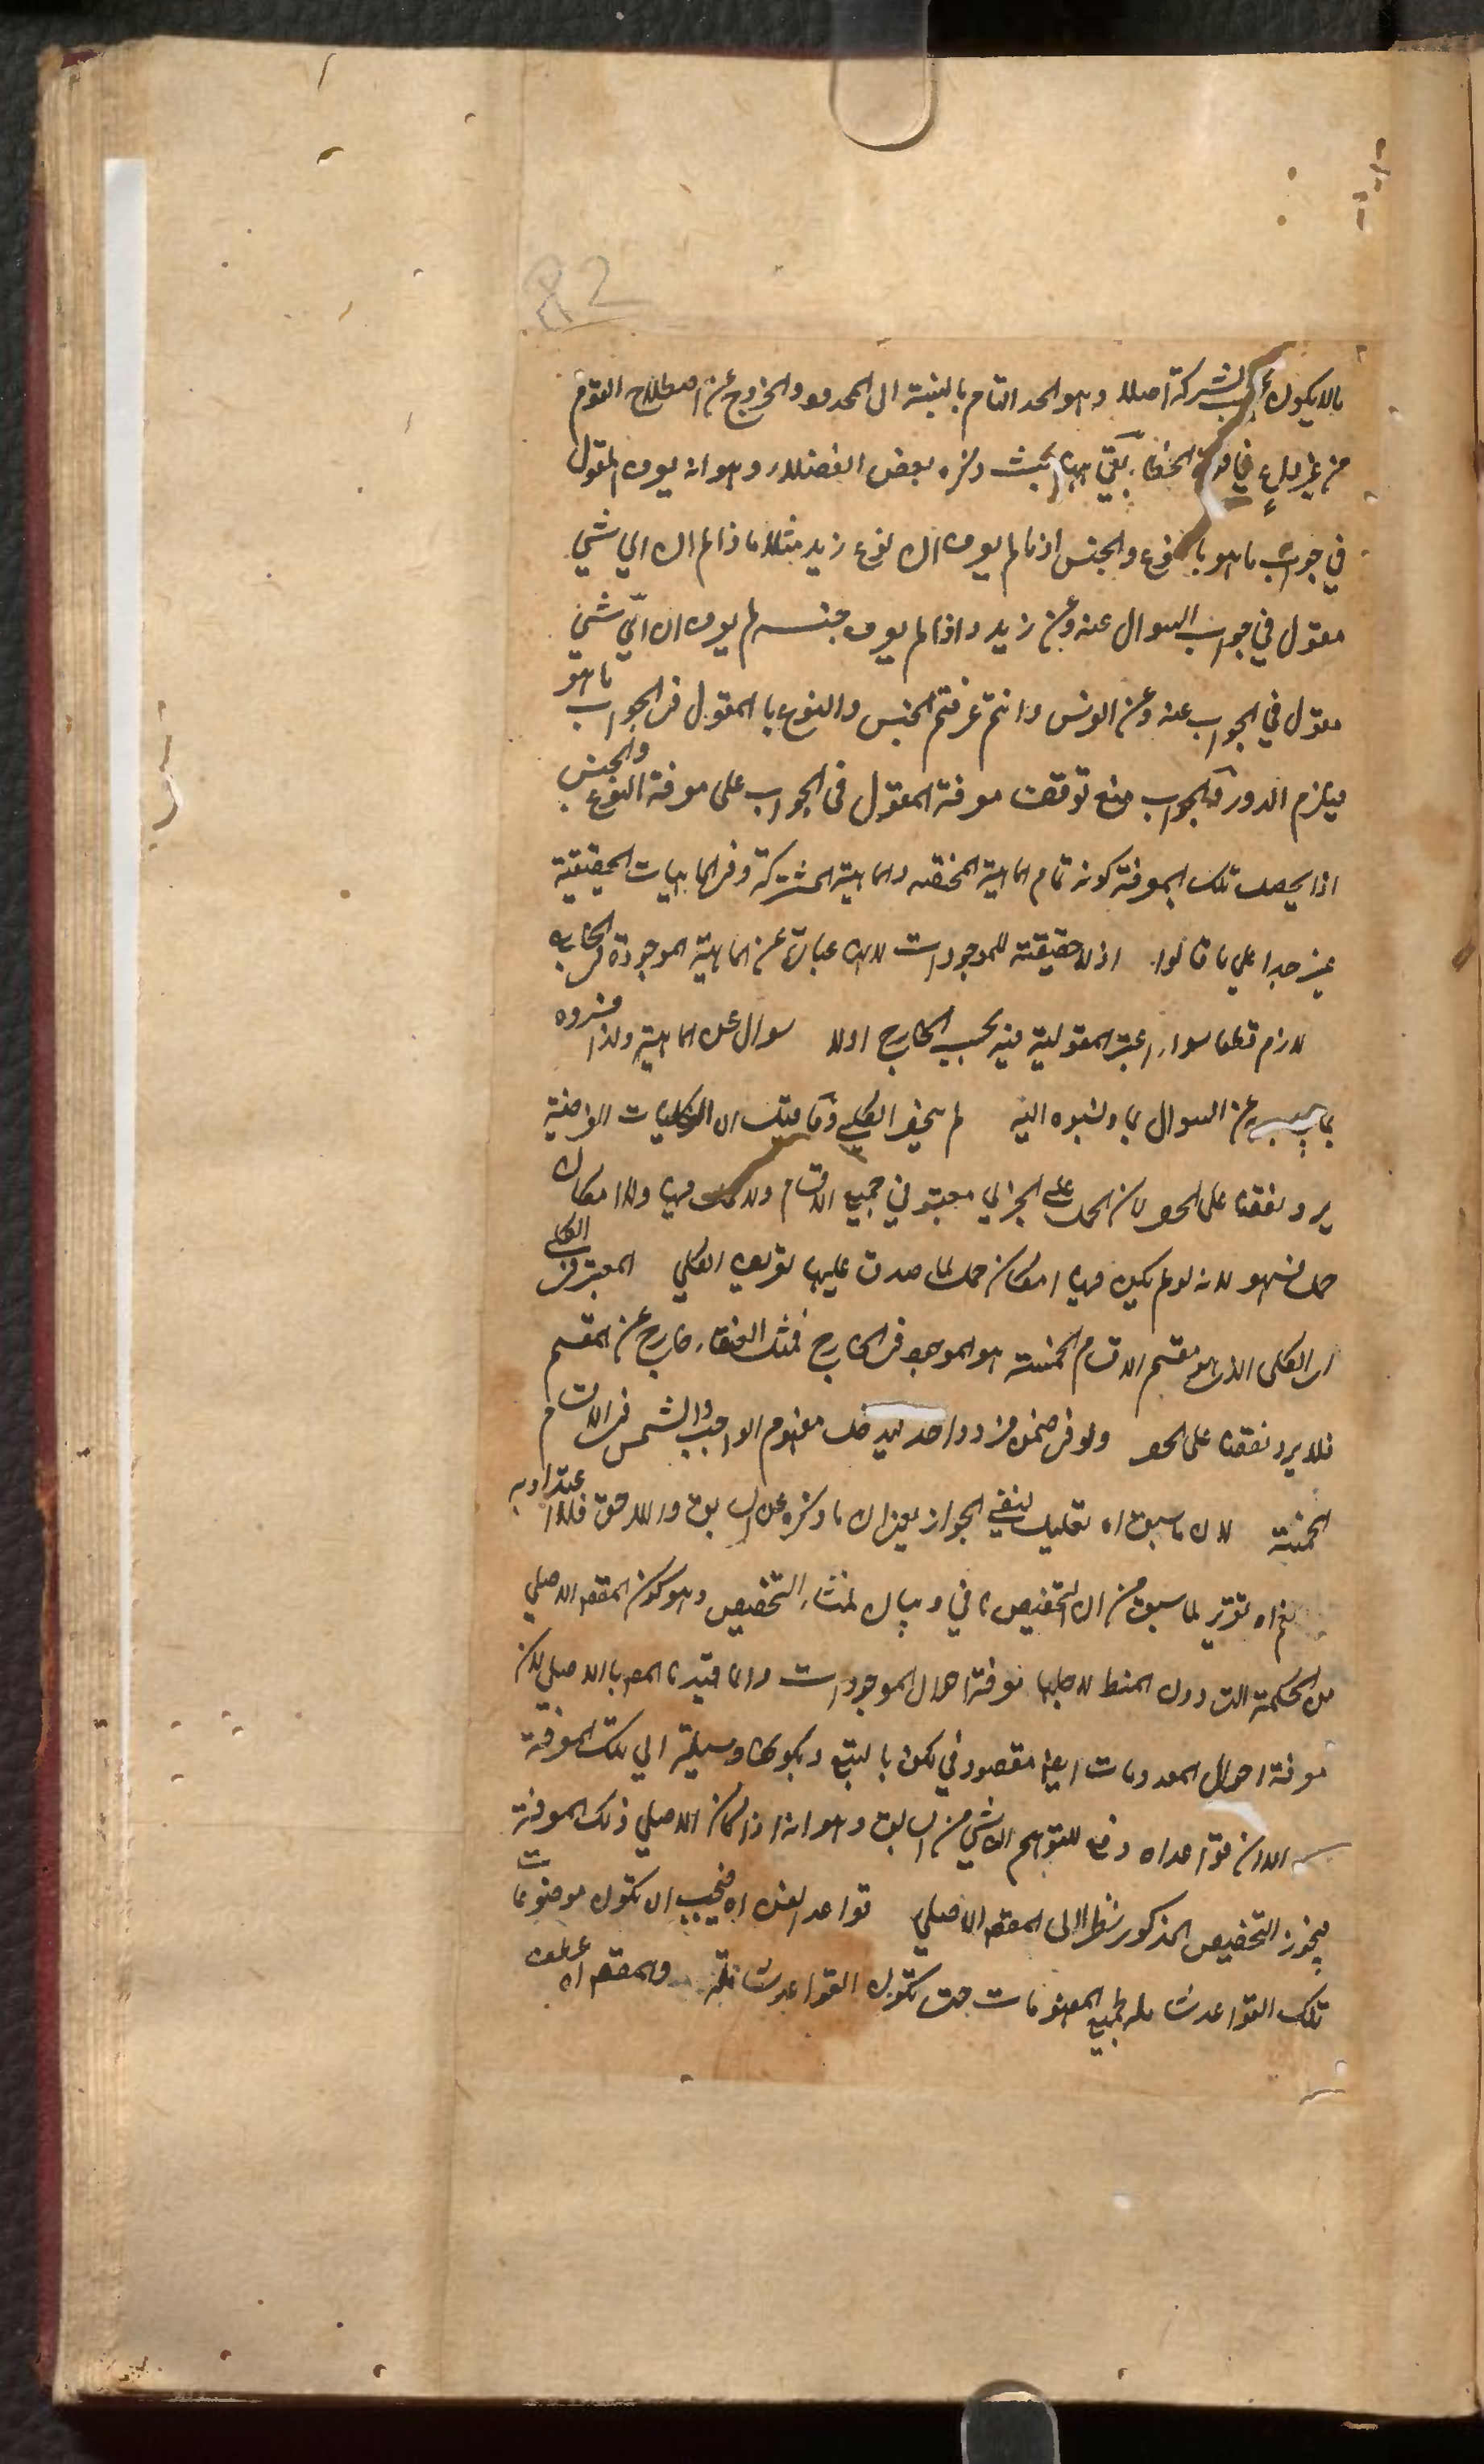 82
ما لا يكون بحسب الشركة اصلا وهو الحد التام بالنسبة الى المحدود والخروج عن اصطلاح القوم
من غير داع في قوة الخطاء بقي ههنا بحث ذكره بعض الفضلاء وهو انه يعرف المقول
في جواب ما هو بالنوع والجنس اذ ما لم يعرف ان نوع زيد مثلا ماذا لم يعرف ان اي شي
مقول في جواب السوال عنه وعن زيد واذا لم يعرف جنسه لم يعرف ان اي شي
مقول في الجواب عنه وعن الفرس وانتم عرفتم الجنس والنوع بالمقول في الجواب ما هو
فيلزم الدور والجواب منع توقف معرفة المقول في الجواب على معرفة النوع والجنس
اذا يحصل تلك المعرفة كونه تمام الماهية المختصة والماهية المشتركة وفي الماهيات الحقيقية
عسر جدا على ما قالوا اذ لا حقيقة للموجودات لانها عبارة عن الماهية الموجودة في الخارج
لازم قطعا سواء اعتبر المقولية فيه بحسب الخارج اولا سوال عن الماهية ولذا فسروه
بما يجب عن السوال بما ونسبوه اليه لم ينحصر الكلي وما قيل ان الكليات الفرضية
يرد نقضا على الحصر لان الحمل على الجزئي معتبر في جميع الاقسام ولا حمل فيها ولا امكان
حمل فسهو لانه لو لم يكن فيها امكان حمل لما صدق عليها تعريف الكلي المعتبر في الكلي
اى الكلى الذى هو مقسم الاقسام الخمسة هو الموجود في الخارج فمثل العنقاء خارج عن المقسم
فلا يرد نقضا على الحصر ولو في ضمن فرد واحد ليدخل مفهوم الواجب والشمس في الاقسام
الخمسة لان ما سبق اه تعليل لنفي الجواز يعني ان ما ذكره عن السابق واللاحق فلا اعتداد به
نعم اه تقرير لما سبق من ان التخصيص ينافي وبيان لمنشاء التخصيص وهو كون المقصد الاصلي
من الحكمة التى دون المنطق لاجلها معرفة احوال الموجودات وانما قيدنا المقصد بالاصلي لان
معرفة احوال المعدومات ايضا مقصود في لكن بالتبع وبكونها وسيلة الى تلك المعرفة
الا ان قواعد اه دفع للتوهم الناشي من السابق وهو انه اذا كان الاصلي ذلك المعرفة
فيجوز التخصيص المذكور نظرا الى المقصد الاصلي قواعد الفن اه فيجب ان تكون موضوعات
تلك القواعد شاملة لجميع المفهومات حتى تكون القواعد شاملة والمقصد اه عطف